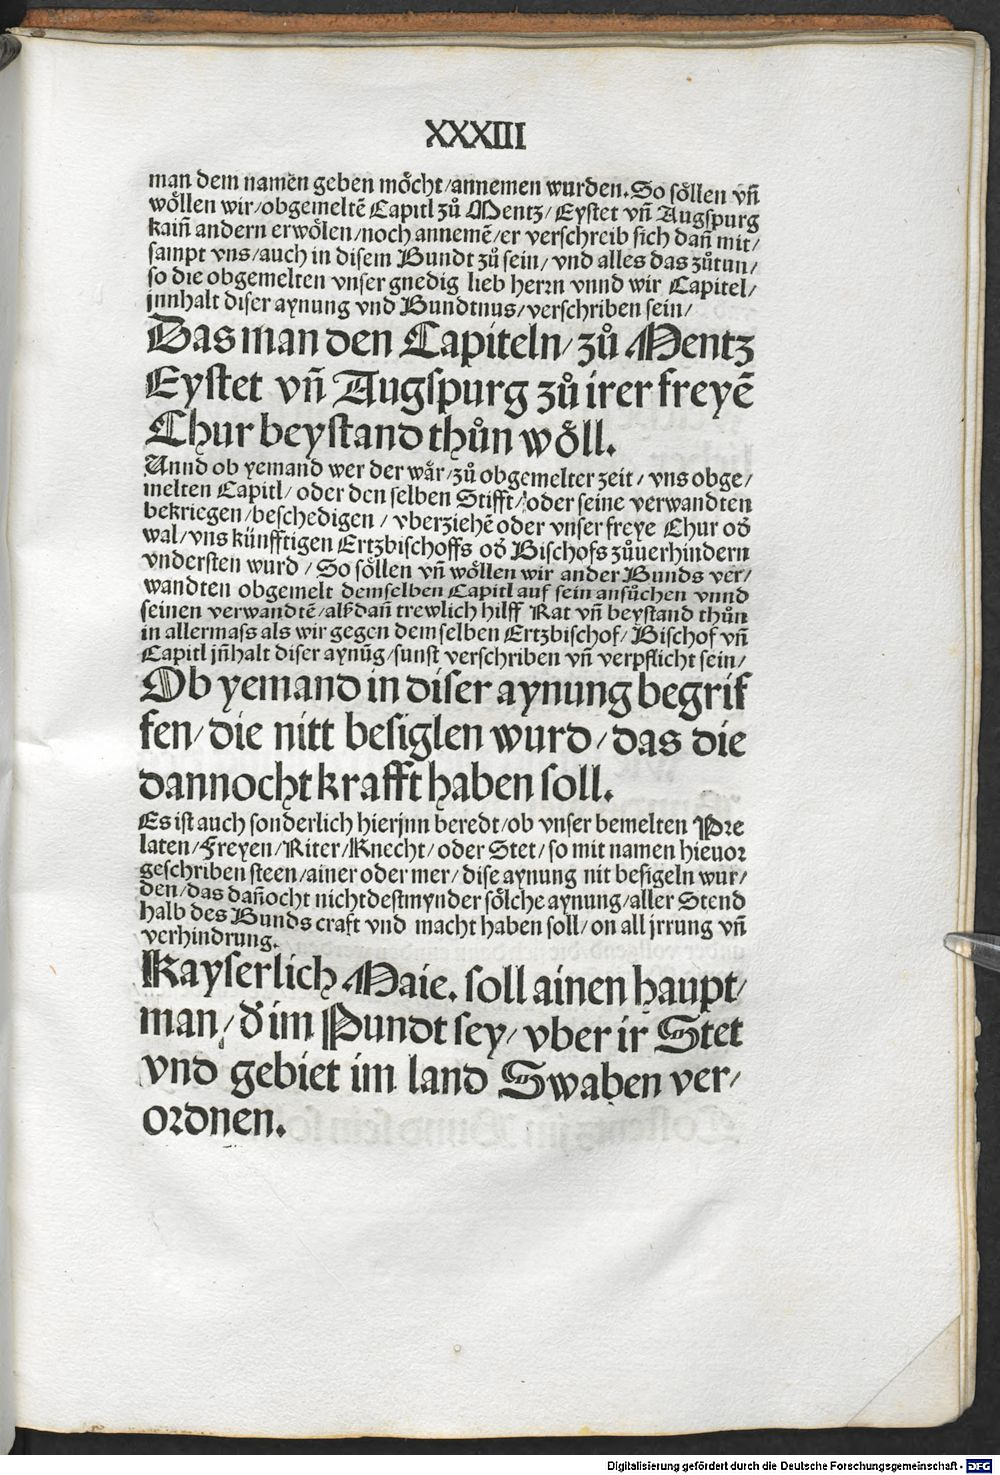 XXXIII
man dem namen geben möcht/annemen wurden. So söllen vn̄
wöllen wir/obgemeltē Capitl zů Mentz/ Eystet vn̄ Augspurg
kain̄ andern erwölen/noch annemē/er verschreib sich dan̄ mit/
sampt vns/auch in disem Bundt zů sein/ vnd alles das zůtun/
so die obgemelten vnser gnedig lieb herrn vnnd wir Capitel/
jnnhalt diser aynung vnd Bundtnus/verschriben sein/
Das man den Capiteln/ zů Mentz
Eystet vn̄ Augspurg zů irer freyē
Chur beystand thůn wöll.
Vnnd ob yemand wer der wär/zů obgemelter zeit/ vns obge/
melten Capitl/ oder den selben Stifft/ oder seine verwandten
bekriegen/beschedigen/ vberziehē oder vnser freye Chur od̄
wal/vns künfftigen Ertzbischoffs od̄ Bischofs zůuerhindern
vndersten wurd/ So söllen vn̄ wöllen wir ander Bunds ver/
wandten obgemelt demselben Capitl auf sein ansůchen vnnd
seinen verwandtē/alß dan̄ trewlich hilff Rat vn̄ beystand thůn
in allermass als wir gegen demselben Ertzbischof/ Bischof vn̄
Capitl jn̄halt diser aynūg/sunst verschriben vn̄ verpflicht sein/
Ob yemand in diser aynung begrif
fen/ die nitt besiglen wurd/das die
dannocht krafft haben soll.
Es ist auch sonderlich hierjnn beredt/ob vnser bemelten Pre
laten/Freyen/Riter/Knecht/ oder Stet/ so mit namen hieuor
geschriben steen/ainer oder mer/ dise aynung nit besigeln wur/
den/das dan̄ocht nichtdestmynder sölche aynung/aller Stend
halb des Bunds craft vnd macht haben soll/ on all jrrung vn̄
verhindrung.
Kayserlich Maie. soll ainen haupt/
man/ d̄ im Pundt sey/ vber ir Stet
vnd gebiet im land Swaben ver/
ordnen.
Digitalisierung gefördert durch die Deutsche Forschungsgemeinschaft - DFG